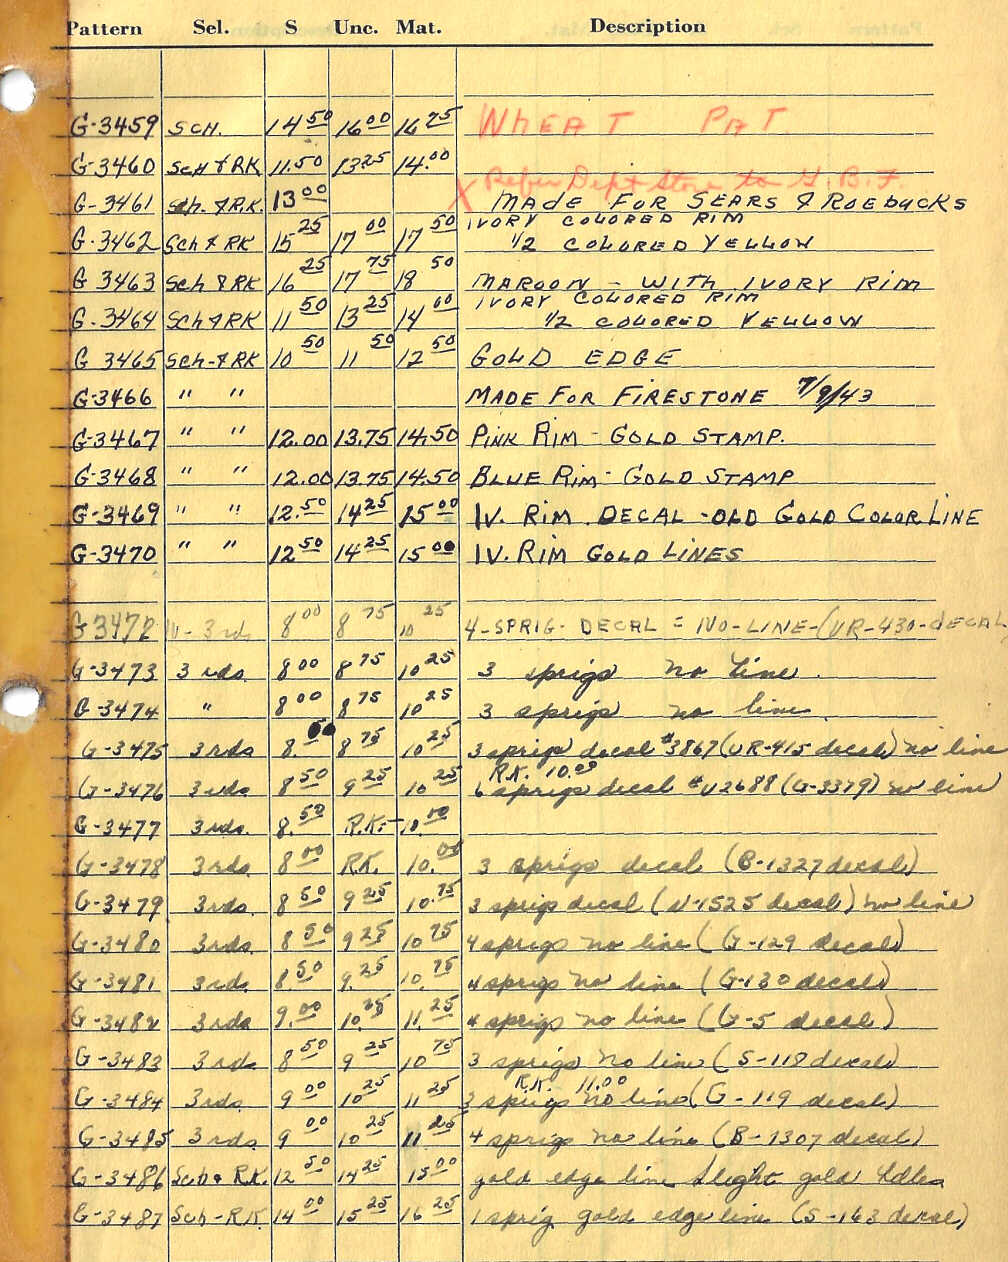 Pattern Sel. S Unc. Mat. Description
G-3459 SCH. 14 50 16 00 16 75 WHEAT PAT
G-3460 SCH & RK 11.50 13 25 14.00
X Refer Dept Store to G.B.F.
G-3461 Sch. & R.K. 13 00 MADE FOR SEARS & ROEBUCKS
IVORY COLORED RIM
G-3462 Sch & RK 15 25 17 00 17 50 1/2 COLORED YELLOW
G 3463 Sch & RK 16 25 17 75 18 50 MAROON - WITH IVORY RIM
IVORY COLORED RIM
G-3464 Sch & RK 11 50 13 25 14 00 1/2 COLORED YELLOW
G 3465 Sch-& RK 10 50 11 50 12 50 GOLD EDGE
G-3466 " " MADE FOR FIRESTONE 7/9/43
G-3467 " " 12.00 13.75 14.50 PINK RIM - GOLD STAMP.
G-3468 " " 12.00 13.75 14.50 BLUE RIM - GOLD STAMP
G-3469 " " 12.50 14 25 15 00 IV. RIM DECAL - OLD GOLD COLOR LINE
G-3470 " " 12 50 14 25 15 00 IV. RIM GOLD LINES
G 3472 - 3rds 8 00 8 75 10 25 4-SPRIG- DECAL = NO-LINE-(VR-430-DECAL
G-3473 3 rds. 8 00 8 75 10 25 3 sprigs no line.
G-3474 " 8 00 8 75 10 25 3 sprigs no line.
G-3475 3rds 8. 8 75 10 25 3 sprigs decal #3867 (VR-415 decal) no line
R.K. 10.00
G-3476 3rds 8 50 9 25 10 25 6 sprigs decal #V2688 (G-3379) no line
G-3477 3rds. 8.50 R.K. - 10.00
G-3478 3rds. 8 00 RK. 10.00 3 sprigs decal (B-1327 decal)
G-3479 3rds. 8 50 9 25 10.75 3 sprigs decal (V-1525 decal) no line
G-3480 3rds 8 50 9 25 10 75 4 sprigs no line (G-129 decal)
G-3481 3rds. 8.50 9.25 10.75 4 sprigs no line (G-130 decal)
G-3482 3rds 9.00 10.25 11.25 4 sprigs no line (G-5 decal)
G-3483 3rds 8 50 9 25 10 75 3 sprigs no line (S-118 decal)
R.K. 11.00
G-3484 3rds. 9 00 10 25 11 25 3 sprigs no line (G-119 decal)
G-3485 3rds. 9 00 10 25 11 25 4 sprigs no line (B-1307 decal)
G-3486 Sch & R.K. 12 50 14 25 15 00 gold edge line slight gold
G-3487 Sch-R.K. 14 00 15 25 16 25 1 sprig gold edge line (S-163 decal)